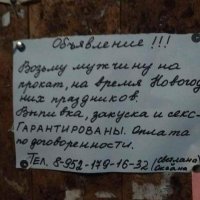 Объявление !!!
Возьму мужчину на
прокат, на время Новогод
них праздников.
Выпивка, закуска и секс-
ГАРАНТИРОВАНЫ. Оплата
по договоренности.
Тел. 8-952-179-16-32 /Светлана
Оксана